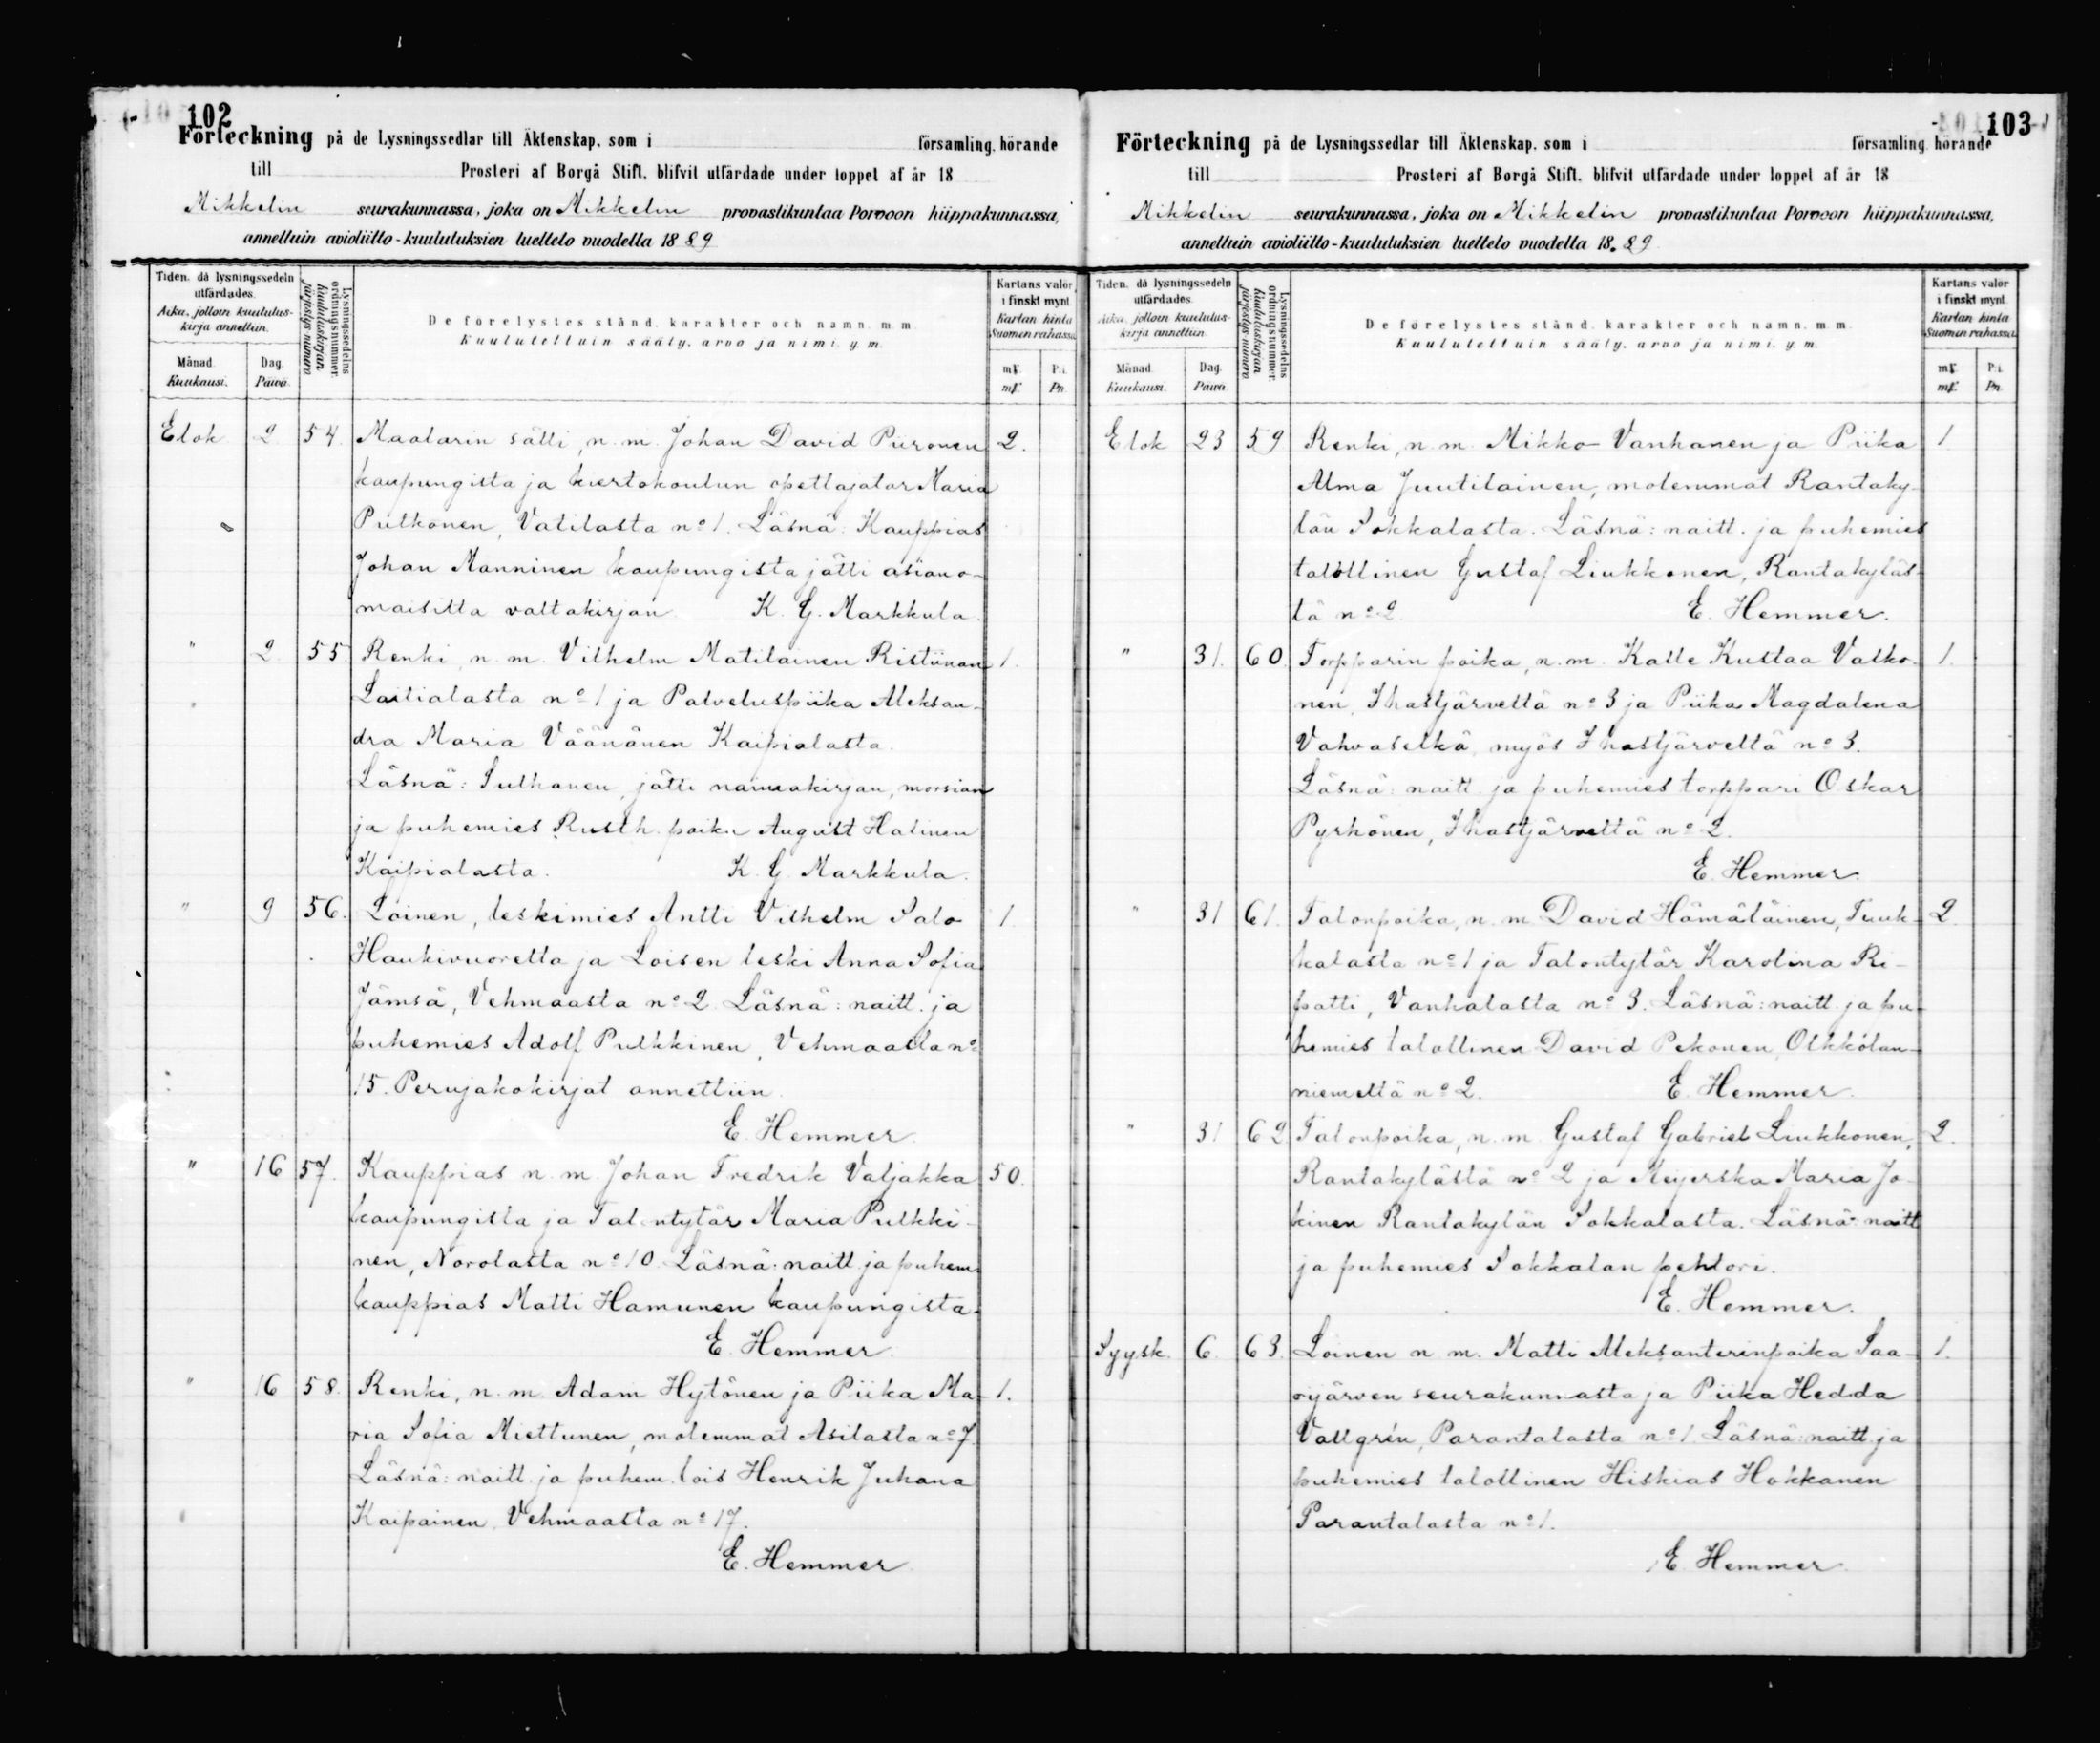 102
Förteckning på de Lysningssedlar till Äktenskap, som i församling, hörande
till Prosteri af Borgå Stift, blifvit utfärdade under loppet af år 18
Mikkelin seurakunnassa, joka on Mikkelin provastikuntaa Porvoon hiippakunnassa,
annettuin avioliitto-kuulutuksien luettelo vuodella 1889
Tiden, då lysningssedeln utfärdades.
Aika, jolloin kuulutus-kirja annettiin.
Månad. Kuukausi.
Dag. Päivä.
Lysningssedelns ordningsnummer.
Kuulutuskirjan järjestys numero
De förelystes stånd, karakter och namn, m. m.
Kuulutettuin sääty, arvo ja nimi, y. m.
Kartans valör i finskt mynt.
Kartan hinta Suomen rahassa
mf. P:i.
mf. Pn.
Elok 2 54. Maalarin sälli, n. m. Johan David Piironen 2.
kaupungista ja kiertokoulun opettajatar Maria
Pulkonen, Vatilasta no 1. Läsnä: Kauppias
Johan Manninen kaupungista jätti asiano-
maisilta valtakirjan K. G. Markkula.
" 2 55. Renki, n. m. Vilhelm Matilainen Ristiinan 1.
Laitialasta no 1 ja Palveluspiika Aleksan-
dra Maria Väänänen Kaipialasta.
Läsnä: Sulhanen, jätti naimakirjan, morsian
ja puhemies Rusth. poika August Halinen
Kaipialasta. K. G. Markkula.
" 9 56. Loinen, leskimies Antti Vilhelm Salo 1.
Haukivuorella ja Loisen leski Anna Sofia
Jämsä, Vehmaasta no 2. Läsnä: naitt. ja
puhemies Adolf Pulkkinen, Vehmaasta no
15. Perujakokirjat annettiin.
E. Hemmer
" 16 57. Kauppias n. m. Johan Fredrik Valjakka 50.
kaupungista ja Talontytär Maria Pulkki-
nen, Norolasta no 10. Läsnä: naitt. ja puhem.
kauppias Matti Hamunen kaupungista.
E. Hemmer
" 16 58. Renki, n. m. Adam Hytönen ja Piika Ma- 1.
ria Sofia Miettunen, molemmat Asilasta no 7.
Läsnä: naitt. ja puhem. lois Henrik Juhana
Kaipainen, Vehmaasta no 17.
E. Hemmer
103
Förteckning på de Lysningssedlar till Äktenskap, som i församling, hörande
till Prosteri af Borgå Stift, blifvit utfärdade under loppet af år 18
Mikkelin seurakunnassa, joka on Mikkelin provastikuntaa Porvoon hiippakunnassa,
annettuin avioliitto-kuulutuksien luettelo vuodella 1889
Tiden, då lysningssedeln utfärdades.
Aika, jolloin kuulutus-kirja annettiin.
Månad. Kuukausi.
Dag. Päivä.
Lysningssedelns ordningsnummer.
Kuulutuskirjan järjestys numero
De förelystes stånd, karakter och namn, m. m.
Kuulutettuin sääty, arvo ja nimi, y. m.
Kartans valör i finskt mynt.
Kartan hinta Suomen rahassa
mf. P:i.
mf. Pn.
Elok 23 59 Renki, n. m. Mikko Vanhanen ja Piika 1.
Alma Juutilainen, molemmat Rantaky-
län Sokkalasta. Läsnä: naitt. ja puhemies
talollinen Gustaf Liukkonen, Rantakyläs-
tä no 2. E. Hemmer.
" 31. 60. Torpparin poika, n. m. Kalle Kustaa Valko- 1.
nen, Ihastjärveltä no 3 ja Piika Magdalena
Vahvaselkä, myös Ihastjärveltä no 3.
Läsnä: naitt. ja puhemies torppari Oskar
Pyrhönen, Ihastjärveltä no 2.
E. Hemmer.
" 31 61. Talonpoika, n. m. David Hämäläinen, Tuuk- 2.
kalasta no 1 ja Talontytär Karolina Ri-
patti, Vanhalasta no 3. Läsnä: naitt. ja pu-
hemies talollinen David Pekonen, Olkkolan-
niemeltä no 2. E. Hemmer.
" 31 62 Talonpoika, n. m. Gustaf Gabriel Liukkonen, 2.
Rantakylästä no 2 ja Meijerska Maria Jo-
kinen Rantakylän Sokkalasta. Läsnä: naitt.
ja puhemies Sokkalan pehtori.
E. Hemmer.
Syysk. 6. 63. Loinen n. m. Matti Aleksanterinpoika Saa- 1.
rijärven seurakunnasta ja Piika Hedda
Vallgrén, Parantalasta no 1. Läsnä: naitt. ja
puhemies talollinen Hiskias Hokkanen
Parantalasta no 1.
E. Hemmer